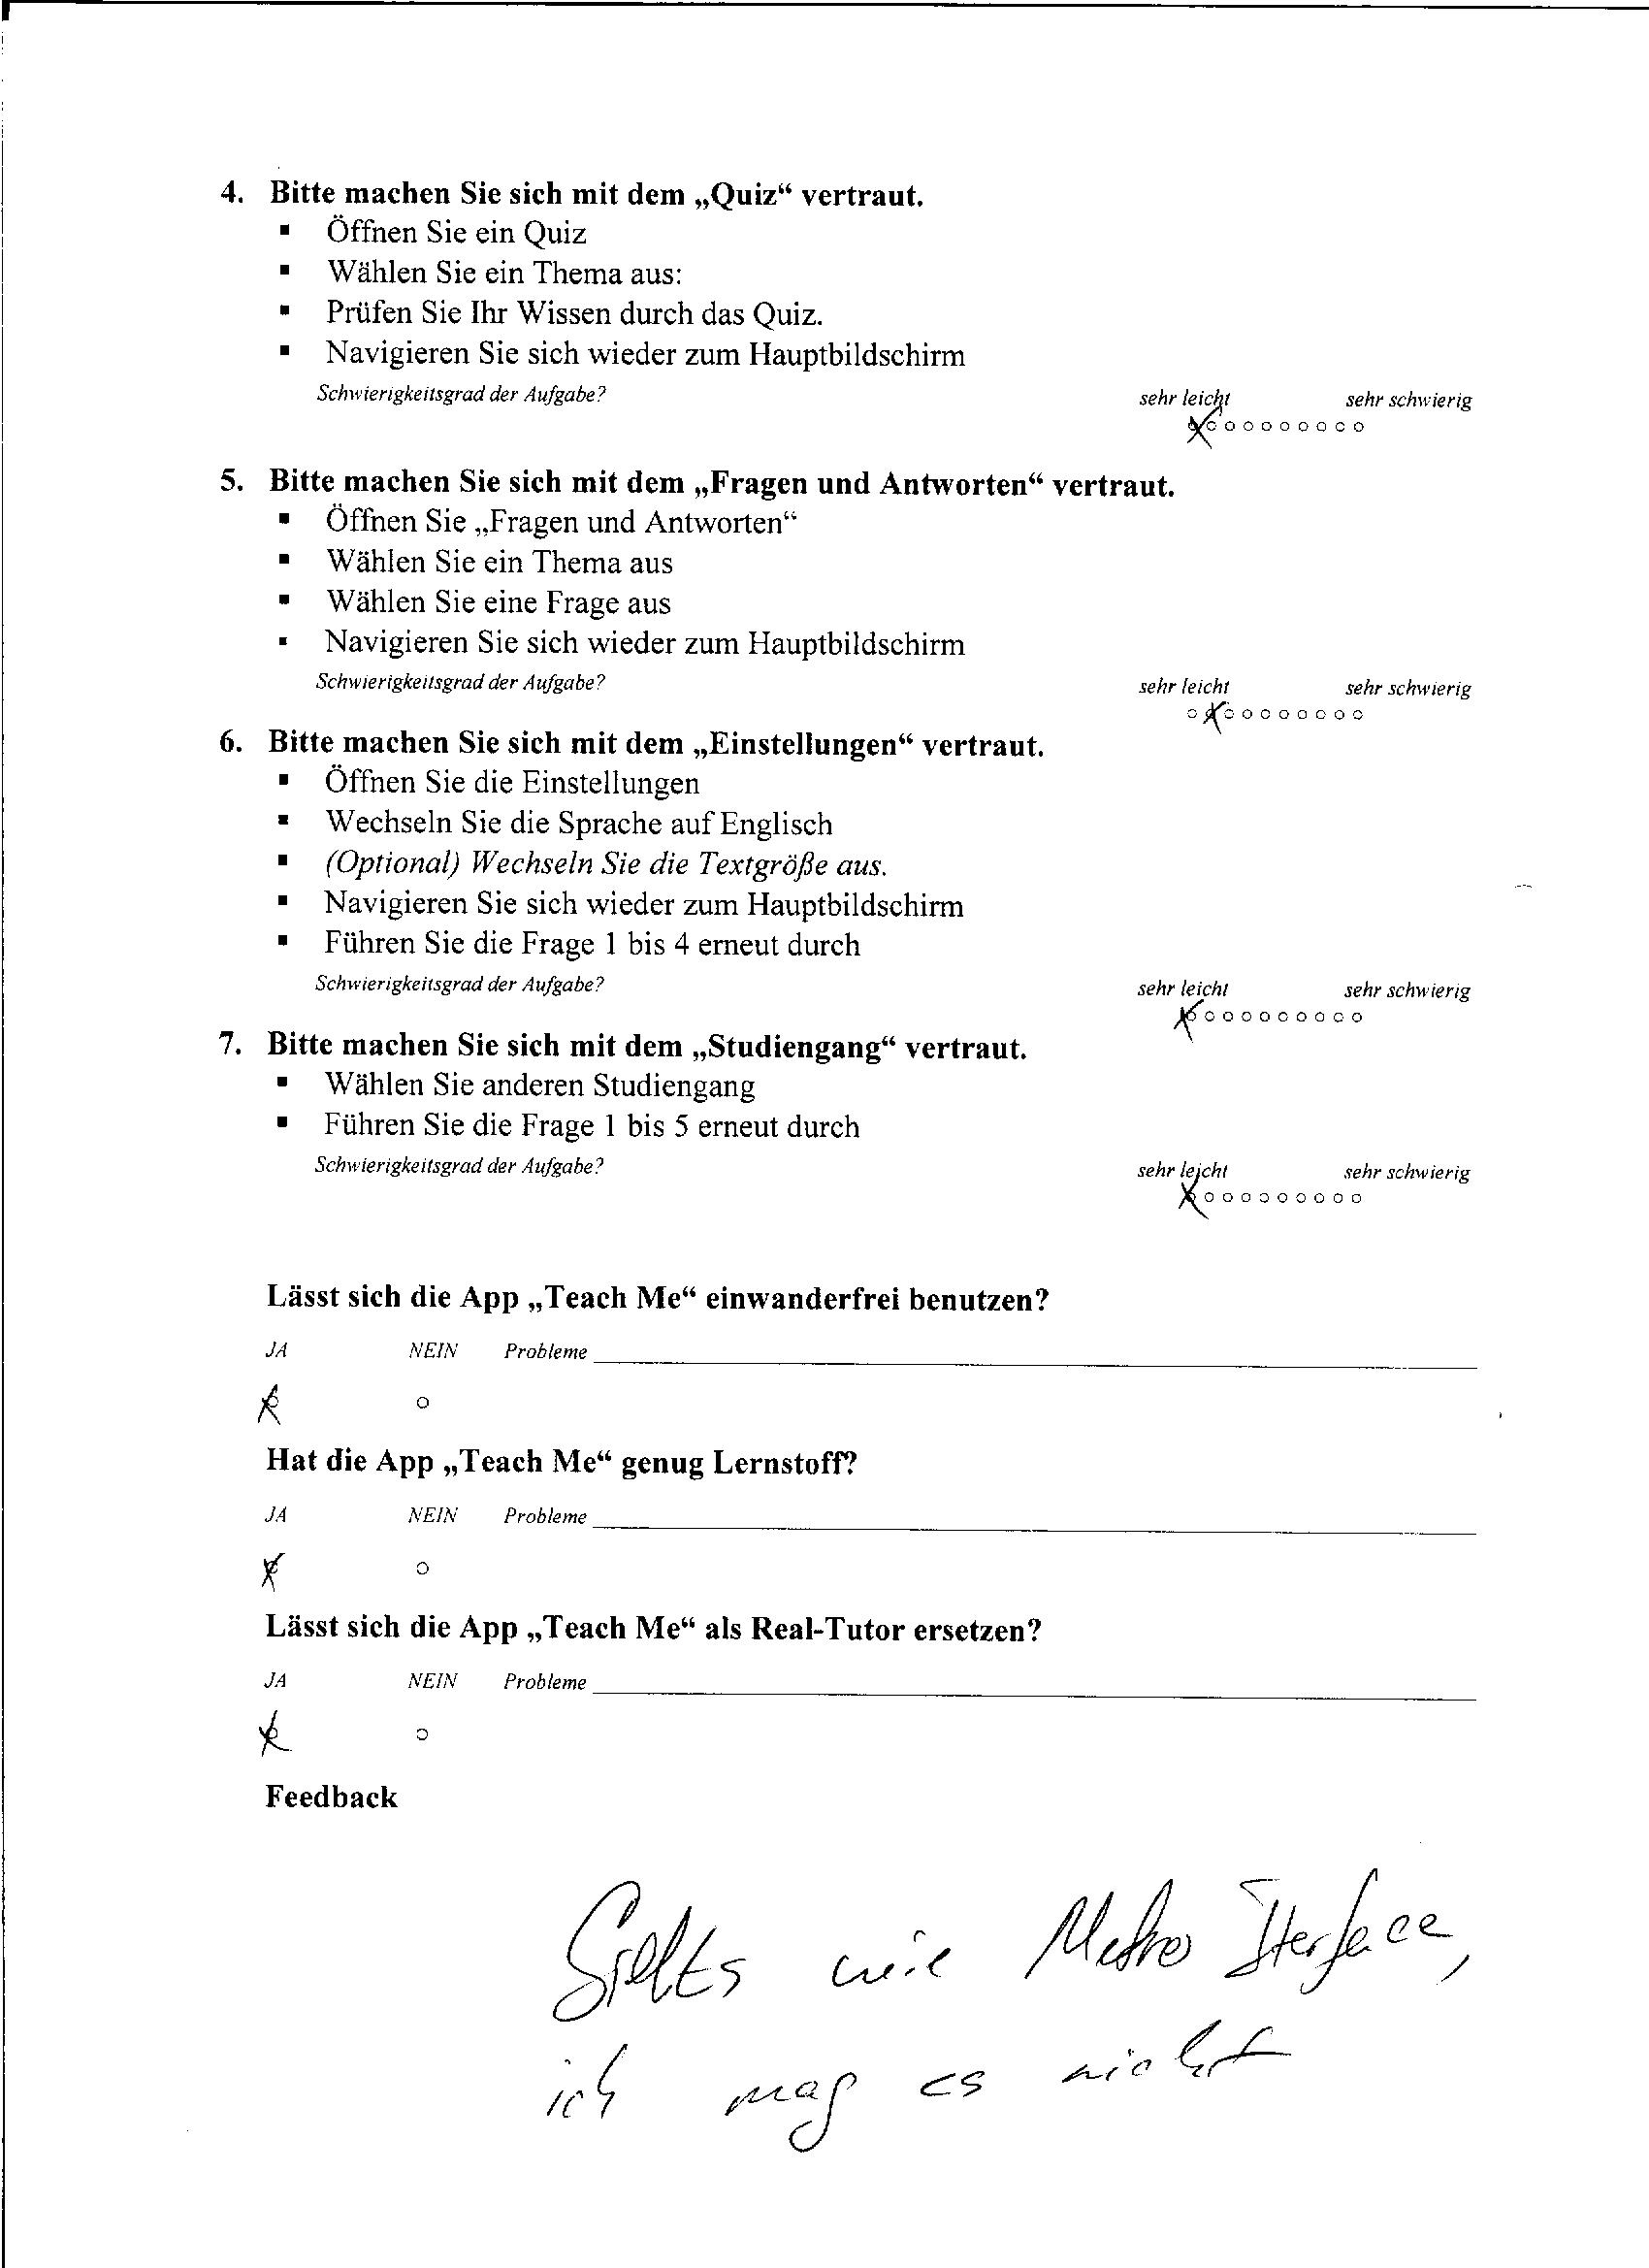 4. Bitte machen Sie sich mit dem „Quiz“ vertraut.
▪ Öffnen Sie ein Quiz
▪ Wählen Sie ein Thema aus:
▪ Prüfen Sie Ihr Wissen durch das Quiz.
▪ Navigieren Sie sich wieder zum Hauptbildschirm
Schwierigkeitsgrad der Aufgabe? sehr leicht sehr schwierig
5. Bitte machen Sie sich mit dem „Fragen und Antworten“ vertraut.
▪ Öffnen Sie „Fragen und Antworten“
▪ Wählen Sie ein Thema aus
▪ Wählen Sie eine Frage aus
▪ Navigieren Sie sich wieder zum Hauptbildschirm
Schwierigkeitsgrad der Aufgabe? sehr leicht sehr schwierig
6. Bitte machen Sie sich mit dem „Einstellungen“ vertraut.
▪ Öffnen Sie die Einstellungen
▪ Wechseln Sie die Sprache auf Englisch
▪ (Optional) Wechseln Sie die Textgröße aus.
▪ Navigieren Sie sich wieder zum Hauptbildschirm
▪ Führen Sie die Frage 1 bis 4 erneut durch
Schwierigkeitsgrad der Aufgabe? sehr leicht sehr schwierig
7. Bitte machen Sie sich mit dem „Studiengang“ vertraut.
▪ Wählen Sie anderen Studiengang
▪ Führen Sie die Frage 1 bis 5 erneut durch
Schwierigkeitsgrad der Aufgabe? sehr leicht sehr schwierig
Lässt sich die App „Teach Me“ einwanderfrei benutzen?
JA NEIN Probleme
Hat die App „Teach Me“ genug Lernstoff?
JA NEIN Probleme
Lässt sich die App „Teach Me“ als Real-Tutor ersetzen?
JA NEIN Probleme
Feedback
wie Metro Iterface,
ich mag es nicht